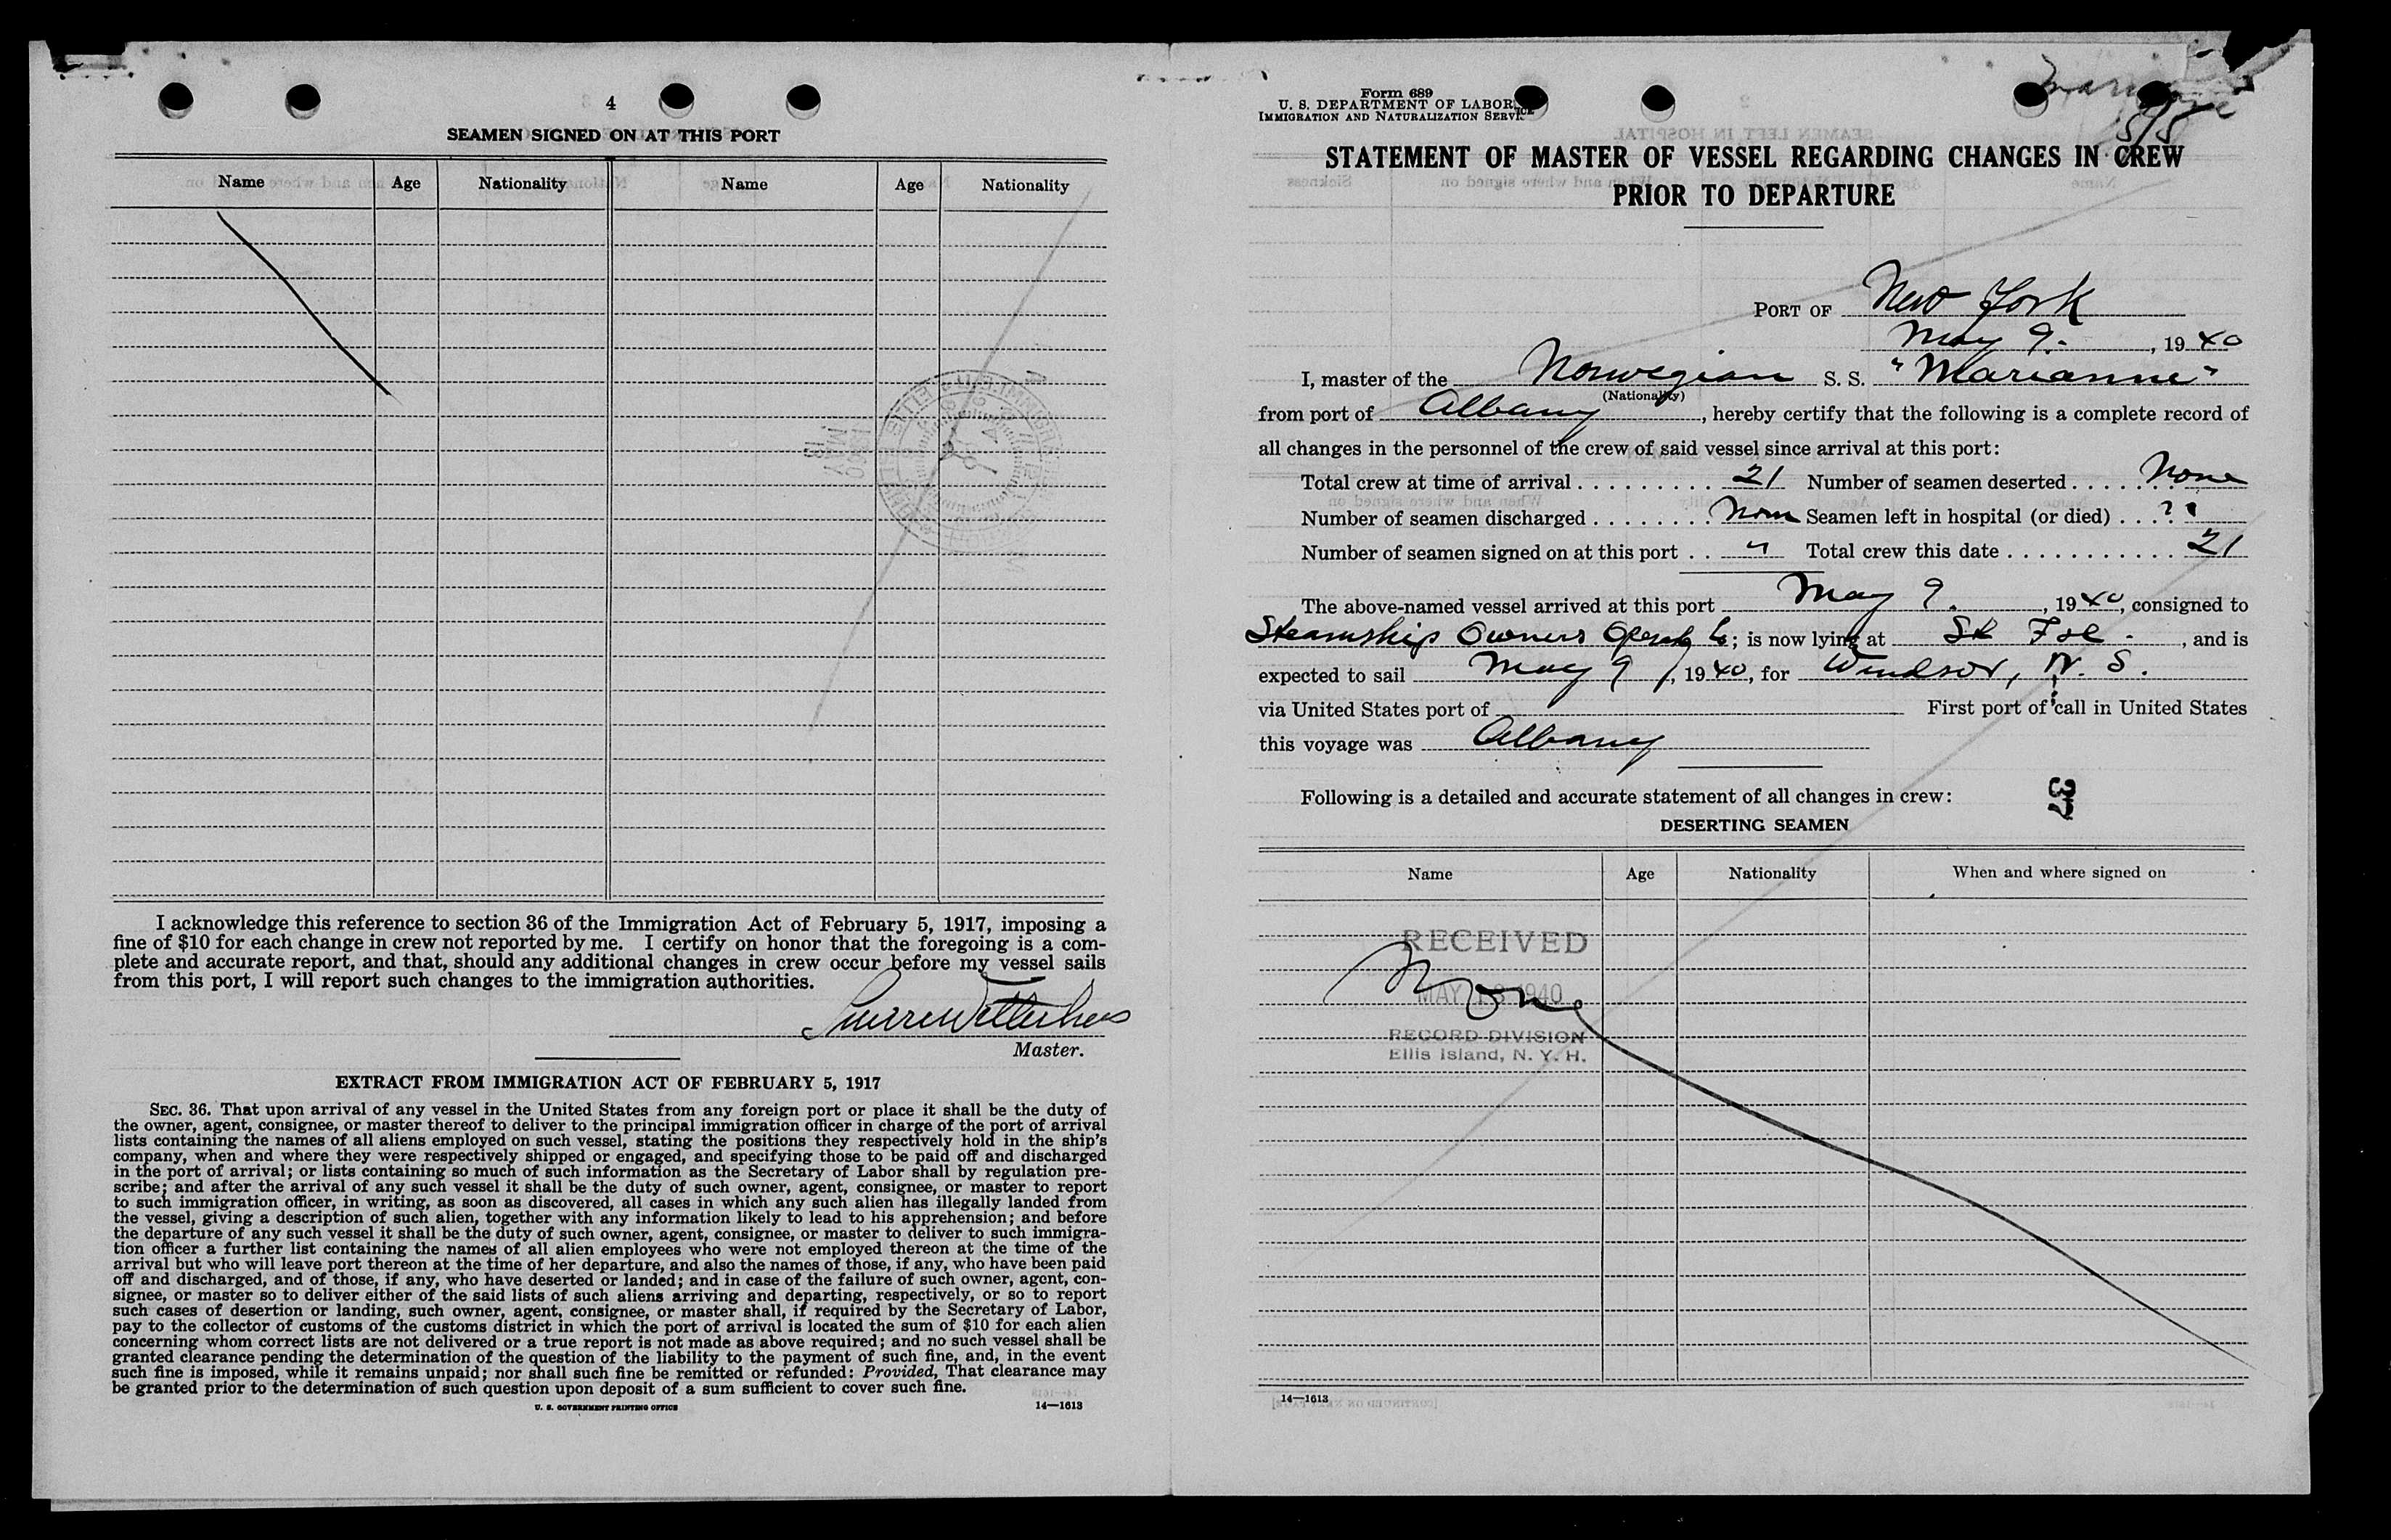 4
SEAMEN SIGNED ON AT THIS PORT
Name Age Nationality Name Age Nationality
I acknowledge this reference to section 36 of the Immigration Act of February 5, 1917, imposing a
fine of $10 for each change in crew not reported by me. I certify on honor that the foregoing is a com-
plete and accurate report, and that, should any additional changes in crew occur before my vessel sails
from this port, I will report such changes to the immigration authorities.
Master.
EXTRACT FROM IMMIGRATION ACT OF FEBRUARY 5, 1917
SEC. 36. That upon arrival of any vessel in the United States from any foreign port or place it shall be the duty of
the owner, agent, consignee, or master thereof to deliver to the principal immigration officer in charge of the port of arrival
lists containing the names of all aliens employed on such vessel, stating the positions they respectively hold in the ship's
company, when and where they were respectively shipped or engaged, and specifying those to be paid off and discharged
in the port of arrival; or lists containing so much of such information as the Secretary of Labor shall by regulation pre-
scribe; and after the arrival of any such vessel it shall be the duty of such owner, agent, consignee, or master to report
to such immigration officer, in writing, as soon as discovered, all cases in which any such alien has illegally landed from
the vessel, giving a description of such alien, together with any information likely to lead to his apprehension; and before
the departure of any such vessel it shall be the duty of such owner, agent, consignee, or master to deliver to such immigra-
tion officer a further list containing the names of all alien employees who were not employed thereon at the time of the
arrival but who will leave port thereon at the time of her departure, and also the names of those, if any, who have been paid
off and discharged, and of those, if any, who have deserted or landed; and in case of the failure of such owner, agent, con-
signee, or master so to deliver either of the said lists of such aliens arriving and departing, respectively, or so to report
such cases of desertion or landing, such owner, agent, consignee, or master shall, if required by the Secretary of Labor,
pay to the collector of customs of the customs district in which the port of arrival is located the sum of $10 for each alien
concerning whom correct lists are not delivered or a true report is not made as above required; and no such vessel shall be
granted clearance pending the determination of the question of the liability to the payment of such fine, and, in the event
such fine is imposed, while it remains unpaid; nor shall such fine be remitted or refunded: Provided, That clearance may
be granted prior to the determination of such question upon deposit of a sum sufficient to cover such fine.
U. S. GOVERNMENT PRINTING OFFICE 14—1613
Form 689
U. S. DEPARTMENT OF LABOR
IMMIGRATION AND NATURALIZATION SERVICE
5/5
STATEMENT OF MASTER OF VESSEL REGARDING CHANGES IN CREW
PRIOR TO DEPARTURE
PORT OF New York
May 9. , 19 40
I, master of the Norwegian S. S. "Marianne"
(Nationality)
from port of Albany, hereby certify that the following is a complete record of
all changes in the personnel of the crew of said vessel since arrival at this port:
Total crew at time of arrival . . . . . . . . . 21 Number of seamen deserted . . . . . None
Number of seamen discharged . . . . . . . . None Seamen left in hospital (or died) . . . "
Number of seamen signed on at this port . . " Total crew this date . . . . . . . . . . . . 21
The above-named vessel arrived at this port May 9. , 1940, consigned to
Steamship Owners ; is now lying at , and is
expected to sail May 9, 1940, for Windsor, N. S.
via United States port of First port of call in United States
this voyage was Albany
Following is a detailed and accurate statement of all changes in crew:
37
DESERTING SEAMEN
Name Age Nationality When and where signed on
RECEIVED
None
MAY 13 1940
RECORD DIVISION
Ellis Island, N. Y. H.
14—1613